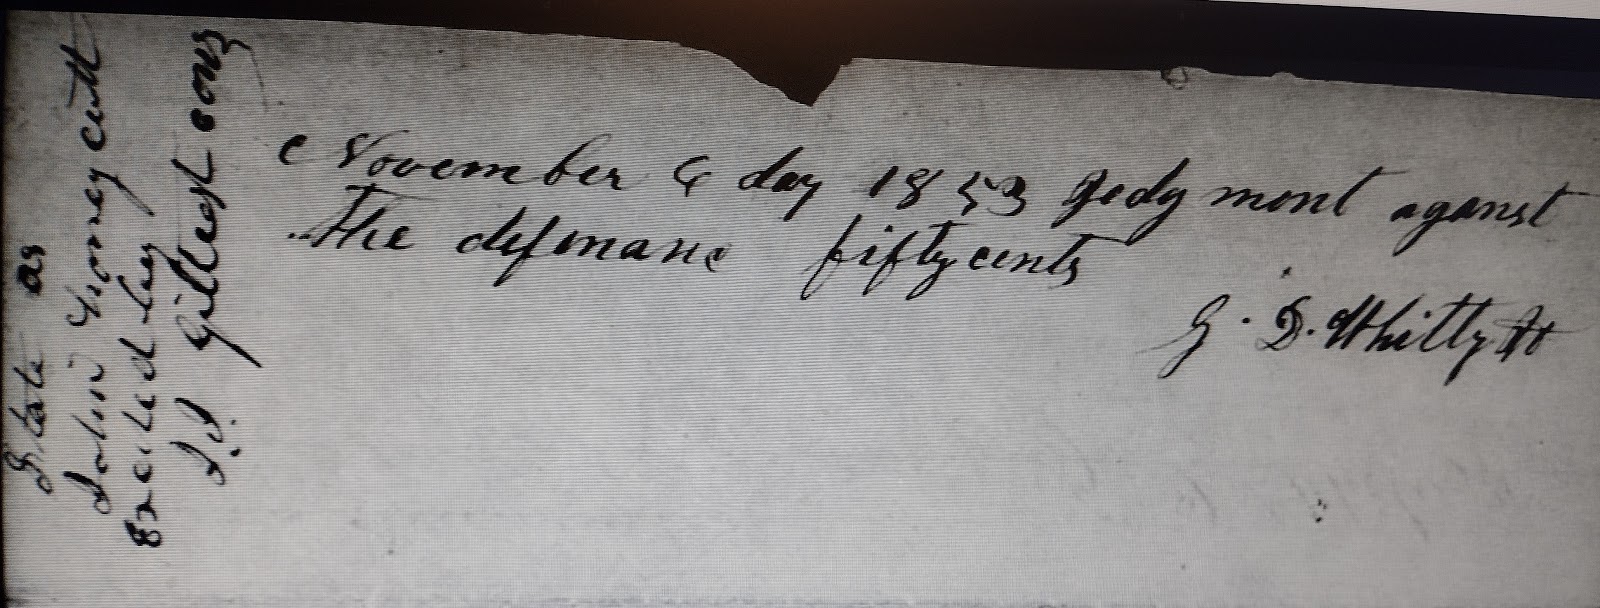 State as
John Honeycutt
Executed by
J. J. Gilleat conz
November 6 day 1853 Gedgmont aganst
the defmane fifty cents
G. D. Whitly